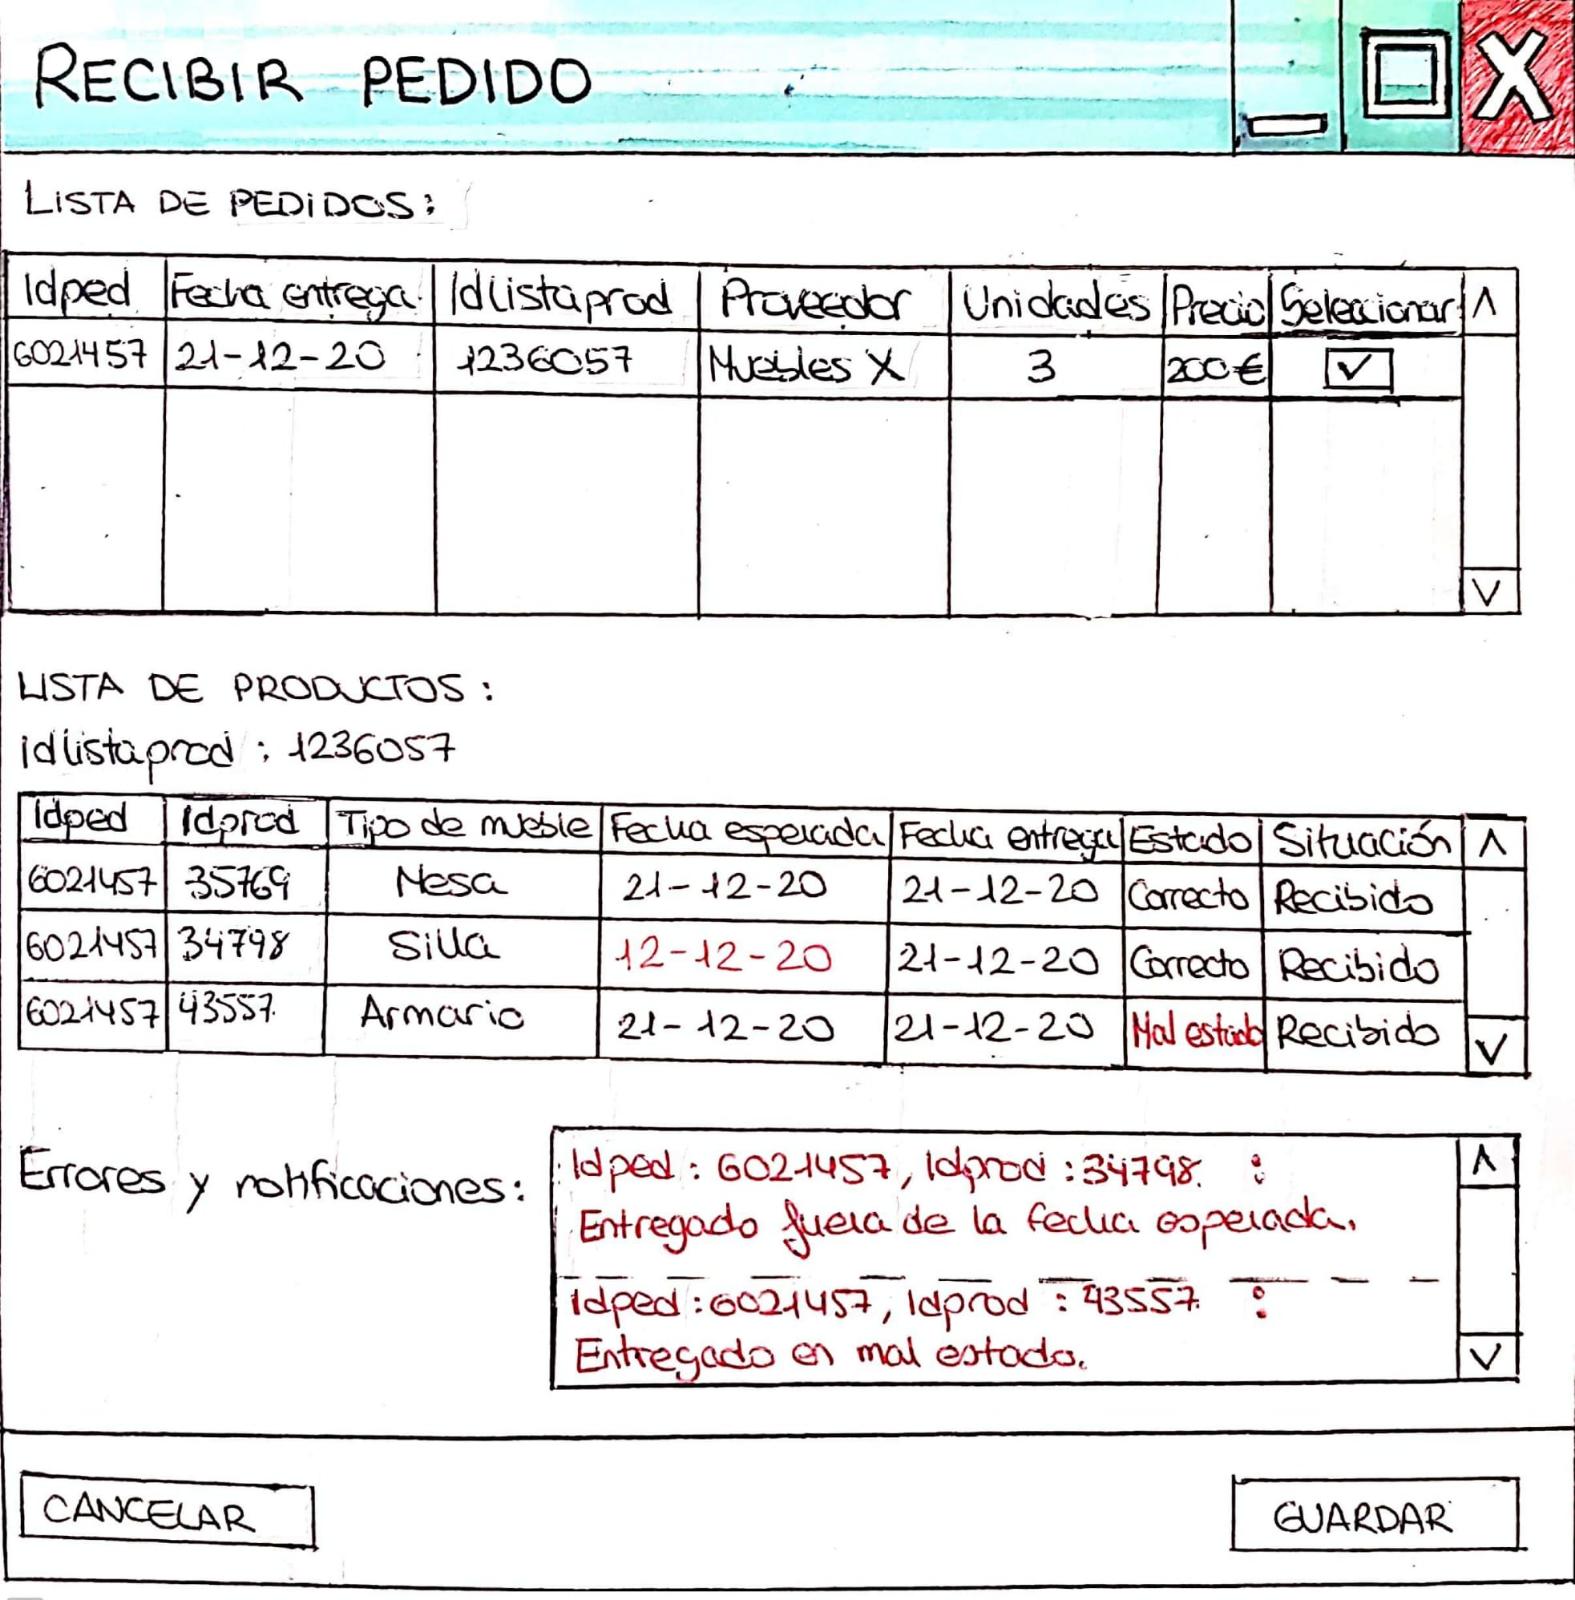 RECIBIR PEDIDO
LISTA DE PEDIDOS:
Idped Fecha entrega Idlistaprod Proveedor Unidades Precio Seleccionar
6021457 21-12-20 1236057 Muebles X 3 200€
LISTA DE PRODUCTOS:
idlistaprod: 1236057
Idped Idprod Tipo de mueble Fecha esperada Fecha entrega Estado Situación
6021457 35769 Mesa 21-12-20 21-12-20 Correcto Recibido
6021457 34798 Silla 12-12-20 21-12-20 Correcto Recibido
6021457 43557 Armario 21-12-20 21-12-20 Mal estado Recibido
Errores y notificaciones:
Idped: 6021457, Idprod: 34798 :
Entregado fuera de la fecha esperada.
Idped: 6021457, Idprod: 43557 :
Entregado en mal estado.
CANCELAR
GUARDAR